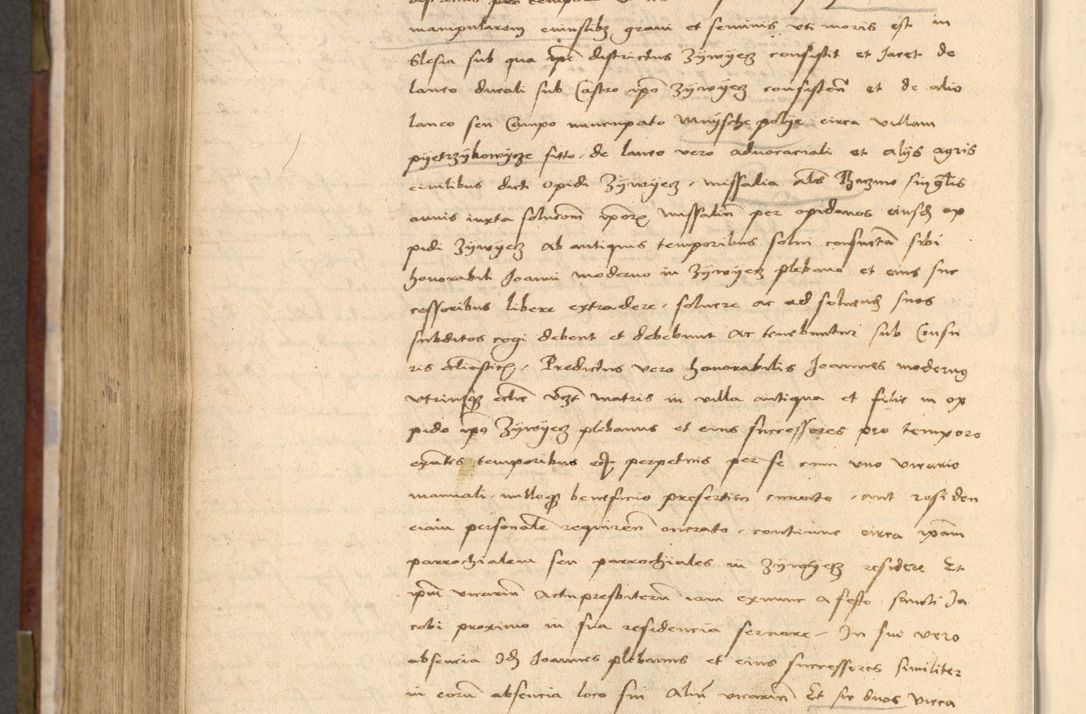 manipularem cuiuslibꝫ grani et seminis uti moris est in
Slesia sub qua ipse districtus Zÿwÿecz consistit et Jacet de
laneo ducali sub Castro ipo Zÿwÿecz consisteñ et de alio
laneo seu Campo nuncupato Mnÿsche polÿe circa villam
pÿetrzÿkowicze sitto, de laneo vero advocaciali et Alÿs agris
civilibus dicti opidi Zÿwÿecz, missalia als singlis
annis iuxta solucom ipoꝝ missaliũ per opidanos eiusdẽ op
pidi Zÿwÿecz Ab antiquis temporibus solui consuetã sibi
honorabili Joanni moderno in Zÿwÿecz plebano et eius suc
cessoribus libere extradere, soluere ac ad soluendũ suos
subditos cogi debent et debebunt Ac tenebuntur sub Censu
ris Predictus vero honorabilis Joannes modernꝰ
utriusqꝫ ecclie matris in villa antiqua et filie in op
pido ipo Zÿwÿecz plebanus et eius successores pro tempore
exñtes temporibus perpetuis per se cum uno vicario
manuali, nulloqꝫ beneficio presertim curato, aut residen
ciam personalẽ requireñ onerato, continue circa ipam
parrochialem seu parrochiales in Zÿwÿecz residere Et
ipm vicariũ Actu presbiterũ iam exnunc a festo sancti Ja
cobi proximo in sua residencia seruare, In sui vero
absencia Idẽ Joannes plebanus et eius successores similiter
in eorũ absencia loco sui Aliũ vicariũ Et sic duos circa